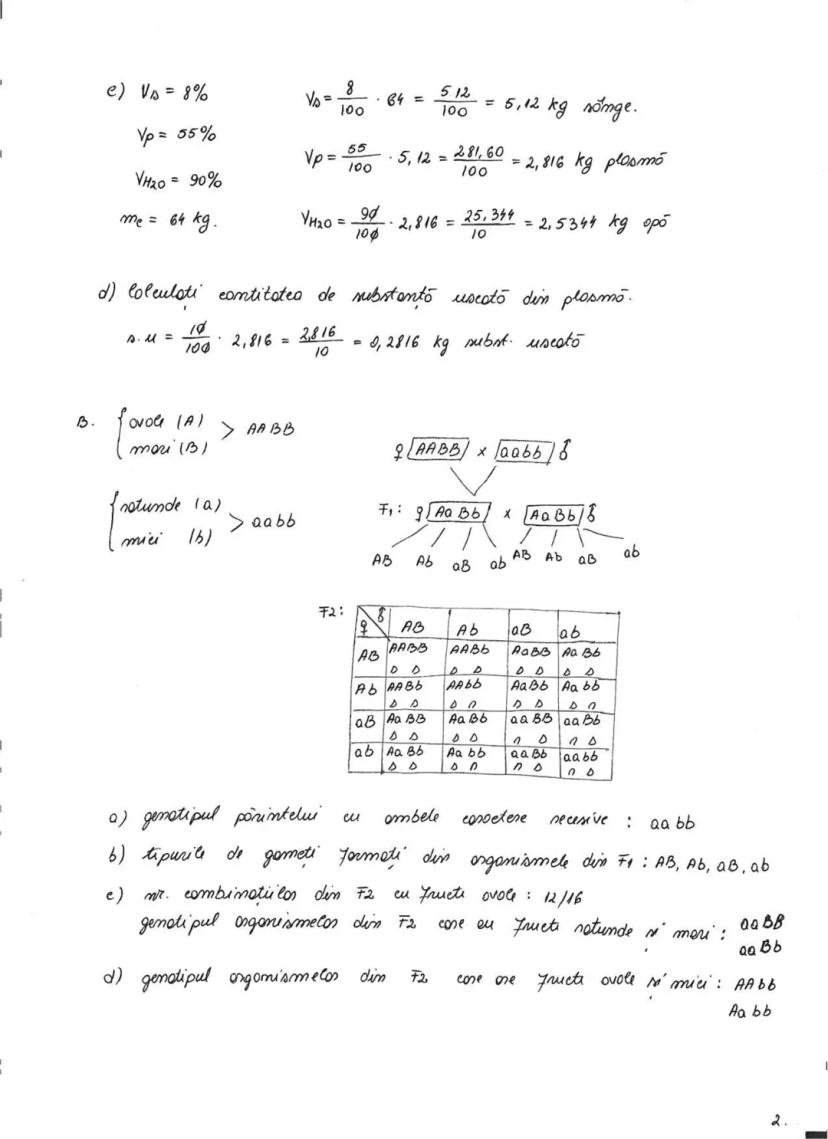 c) Vs = 8%
Vs = 8/100 · 64 = 512/100 = 5,12 kg sânge.
Vp = 55%
Vp = 55/100 · 5,12 = 281,60/100 = 2,816 kg plasmă
VH2O = 90%
VH2O = 90/100 · 2,816 = 25,344/10 = 2,5344 kg apă
mc = 64 kg.
d) Calculați cantitatea de substanță uscată din plasmă.
s.u = 10/100 · 2,816 = 2,816/10 = 0,2816 kg subst. uscată
B. { ovale (A)
mari (B) > AABB
♀ AABB x aabb ♂
{ rotunde (a)
mici (b) > aabb
F1: ♀ AaBb x AaBb ♂
AB Ab aB ab AB Ab aB ab
F2:
♀ \ ♂ AB Ab aB ab
AB AABB AABb AaBB AaBb
D D D D D D D D
Ab AABb AAbb AaBb Aabb
D D D n D D D n
aB AaBB AaBb aaBB aaBb
D D D D n D n D
ab AaBb Aabb aaBb aabb
D D D n n D n D
a) genotipul părintelui cu ambele caractere recesive : aabb
b) tipurile de gameți formați din organismele din F1 : AB, Ab, aB, ab
c) nr. combinațiilor din F2 cu fructe ovale : 12/16
genotipul organismelor din F2 care au fructe rotunde și mari : aaBB
aaBb
d) genotipul organismelor din F2 care are fructe ovale și mici : AAbb
Aabb
2.